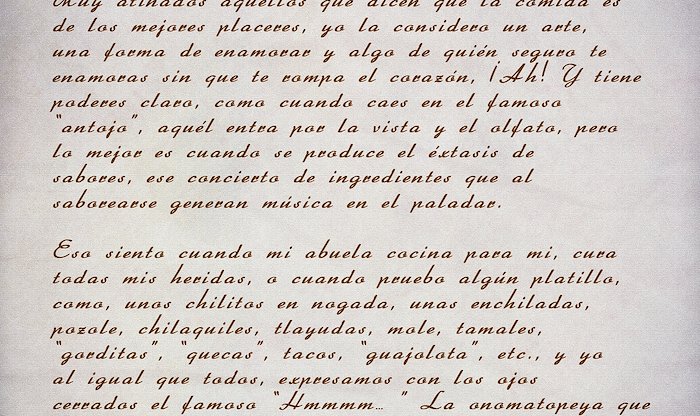 Muy atinados aquellos que dicen que la comida es
de los mejores placeres, yo la considero un arte,
una forma de enamorar y algo de quién seguro te
enamoras sin que te rompa el corazón, ¡Ah! Y tiene
poderes claro, como cuando caes en el famoso
"antojo", aquél entra por la vista y el olfato, pero
lo mejor es cuando se produce el éxtasis de
sabores, ese concierto de ingredientes que al
saborearse generan música en el paladar.
Eso siento cuando mi abuela cocina para mi, cura
todas mis heridas, o cuando pruebo algún platillo,
como, unos chilitos en nogada, unas enchiladas,
pozole, chilaquiles, tlayudas, mole, tamales,
"gorditas", "quecas", tacos, "guajolota", etc., y yo
al igual que todos, expresamos con los ojos
cerrados el famoso "Hmmmm... " La onomatopeya que